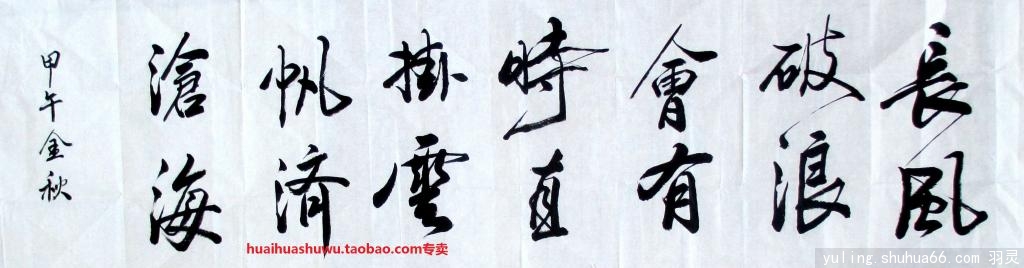 長風
破浪
會有
時直
掛雲
帆済
滄海
甲午金秋
huaihuashuwu.taobao.com专卖
yuling.shuhua66.com 羽灵